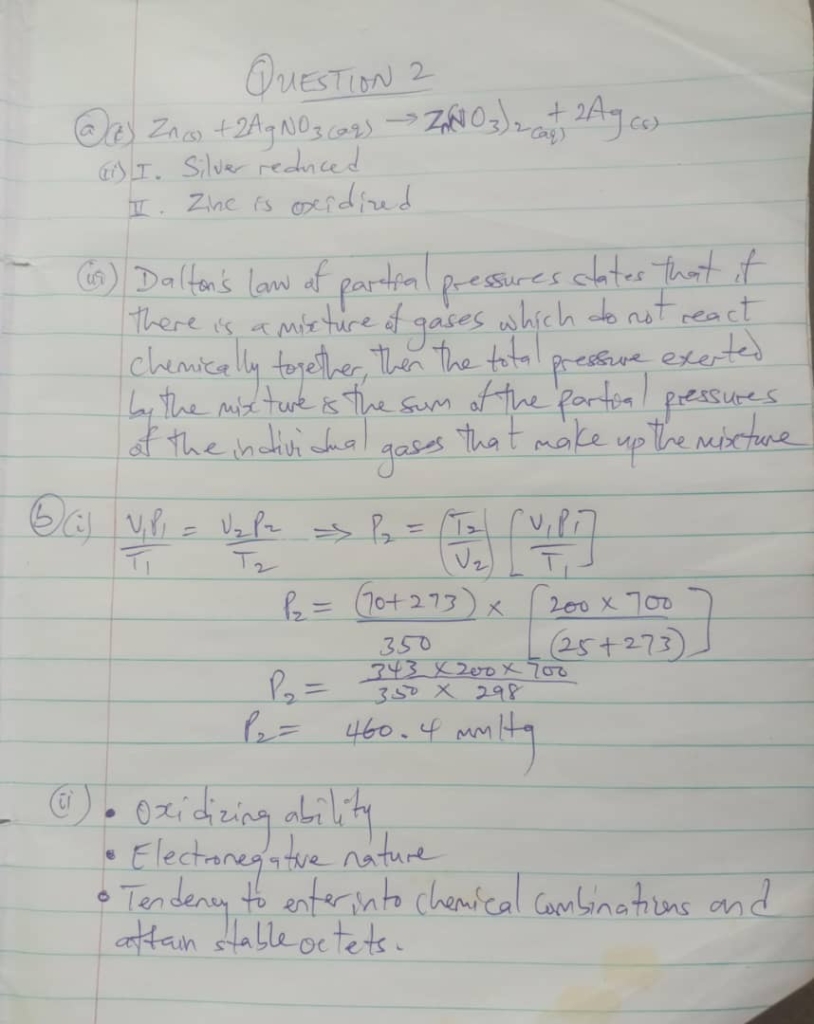 QUESTION 2
(a)(i) Zn(s) + 2AgNO3(aq) → Zn(NO3)2(aq) + 2Ag(s)
(ii) I. Silver reduced
II. Zinc is oxidized
(iii) Dalton's law of partial pressures states that if
there is a mixture of gases which do not react
chemically together, then the total pressure exerted
by the mixture is the sum of the partial pressures
of the individual gases that make up the mixture
(b)(i) V1P1/T1 = V2P2/T2 ⇒ P2 = (T2/V2) [V1P1/T1]
P2 = (70+273)/350 × [200 × 700/(25+273)]
P2 = 343 × 200 × 700/350 × 298
P2 = 460.4 mmHg
(ii) • Oxidizing ability
• Electronegative nature
• Tendency to enter into chemical combinations and
attain stable octets.